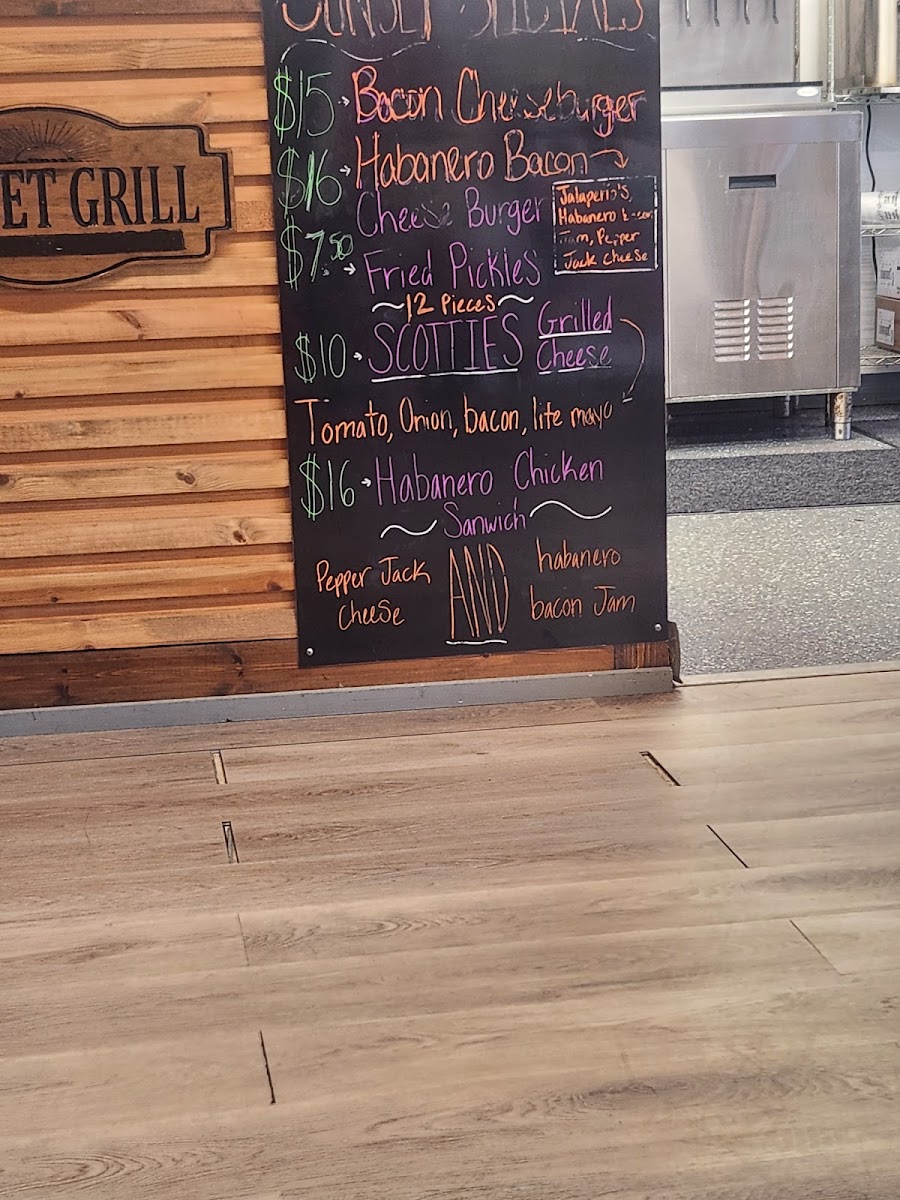 SUNSET SPECIALS
$15 → Bacon Cheeseburger
$16 → Habanero Bacon →
Cheese Burger
Jalapeño's,
Habanero Bacon
Jam, Pepper
Jack cheese
$7.50 → Fried Pickles
~12 Pieces~
$10 → SCOTTIES Grilled Cheese
Tomato, Onion, bacon, lite mayo
$16 → Habanero Chicken
~ Sanwich ~
Pepper Jack Cheese
AND
habanero bacon Jam
ET GRILL